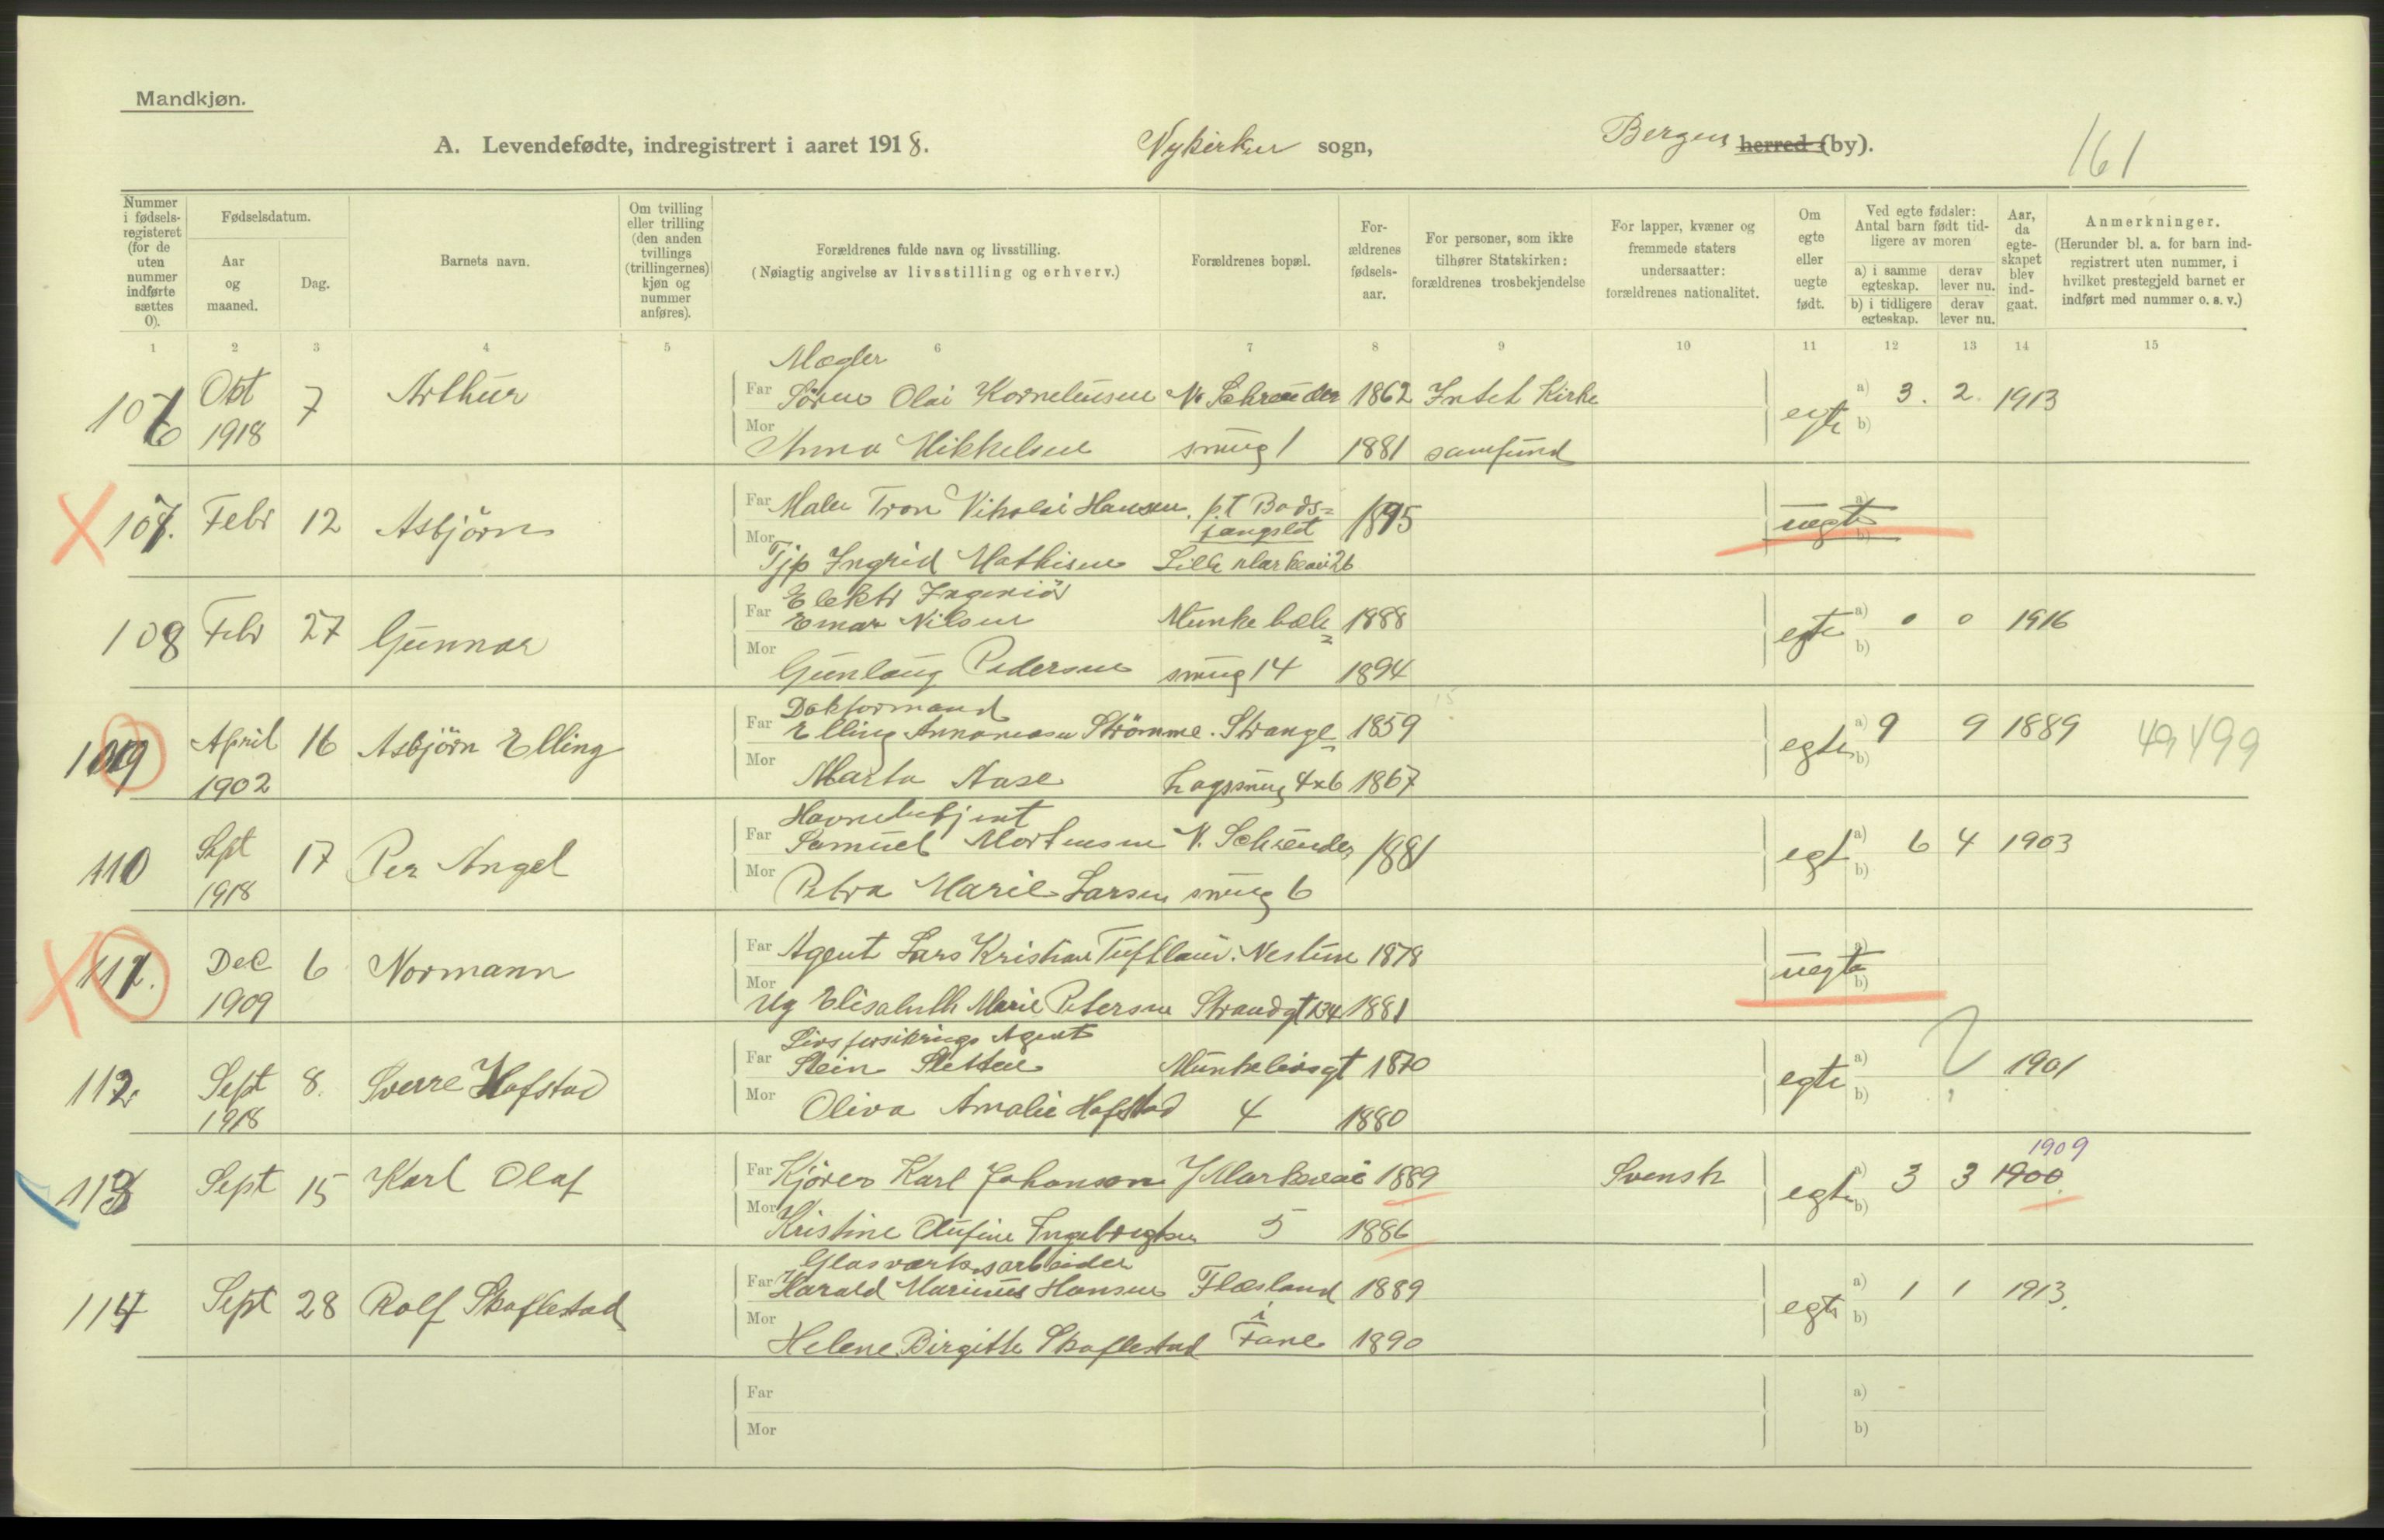 Mandkjøn.
A. Levendefødte, indregistrert i aaret 1918. Nykirken sogn, Bergens herred (by). 161
Nummer i fødsels-registeret (for de uten nummer indførte sættes 0).
Fødselsdatum.
Aar og maaned.
Dag.
Barnets navn.
Om tvilling eller trilling (den anden tvillings (trillingernes) kjøn og nummer anføres).
Forældrenes fulde navn og livsstilling.
(Nøiagtig angivelse av livsstilling og erhverv.)
Forældrenes bopæl.
For-ældrenes fødsels-aar.
For personer, som ikke tilhører Statskirken: forældrenes trosbekjendelse
For lapper, kvæner og fremmede staters undersaatter: forældrenes nationalitet.
Om egte eller uegte født.
Ved egte fødsler: Antal barn født tid-ligere av moren
a) i samme egteskap.
derav lever nu.
b) i tidligere egteskap.
derav lever nu.
Aar, da egte-skapet blev ind-gaat.
Anmerkninger.
(Herunder bl. a. for barn ind-registrert uten nummer, i hvilket prestegjeld barnet er indført med nummer o. s. v.)
1 2 3 4 5 6 7 8 9 10 11 12 13 14 15
Mægler
106 Okt 7 Arthur Far Søren Olai Korneliusen N. Schreuder 1862 Intet Kirke egte a) 3. 2. 1913
1918 Mor Anna Mikkelsen smug 1 1881 samfund b)
107. Febr 12 Asbjörn Far Maler Tron Nikolai Hansen. p.t Bods= 1895 uegte a)
fængslet
Mor Tjp Ingrid Mathisen Lille Markevei 26 b)
Elektr Ingeniör
108 Febr 27 Gunnar Far Einar Nilsen Munkebæk= 1888 egte a) 0 0 1916
Mor Gunlaug Pedersen smug 14 1894 b)
Dokformand
109 April 16 Asbjörn Elling Far Elling Annaniasen Strömme. Strange= 1859 egte a) 9 9 1889 49,499
1902 Mor Marta Aase hagsmug 4×6 1867 b)
Havnebetjent
110 Sept 17 Per Angel Far Samuel Mortensen N. Schreuder 1881 egt a) 6 4 1903
1918 Mor Petra Marie Larsen smug 6 b)
111. Dec 6 Normann Far Agent Lars Kristian Tuftland. Nestun 1878 uegte a)
1909 Mor Ug Elisabeth Marie Petersen Strandgt 234 1881 b)
Livsforsikrings Agent
112. Sept 8. Sverre Hofstad Far Stein Sletten Munkelivsgt 1870 egte a) ? 1901
1918 Mor Oliva Amalie Hofstad 4 1880 b)
1909
113 Sept 15 Karl Olaf Far Kjörer Karl Johanson Markevei 1889 Svensk egte a) 3 3 1900.
Mor Kristine Olufine Ingebregtsen 5 1886 b)
Glasværksarbeider
114 Sept 28 Rolf Skaflestad Far Harald Marinus Hansen Flæsland 1889 egte a) 1 1 1913.
i
Mor Helene Birgitte Skaflestad Fane 1890 b)
Far a)
Mor b)